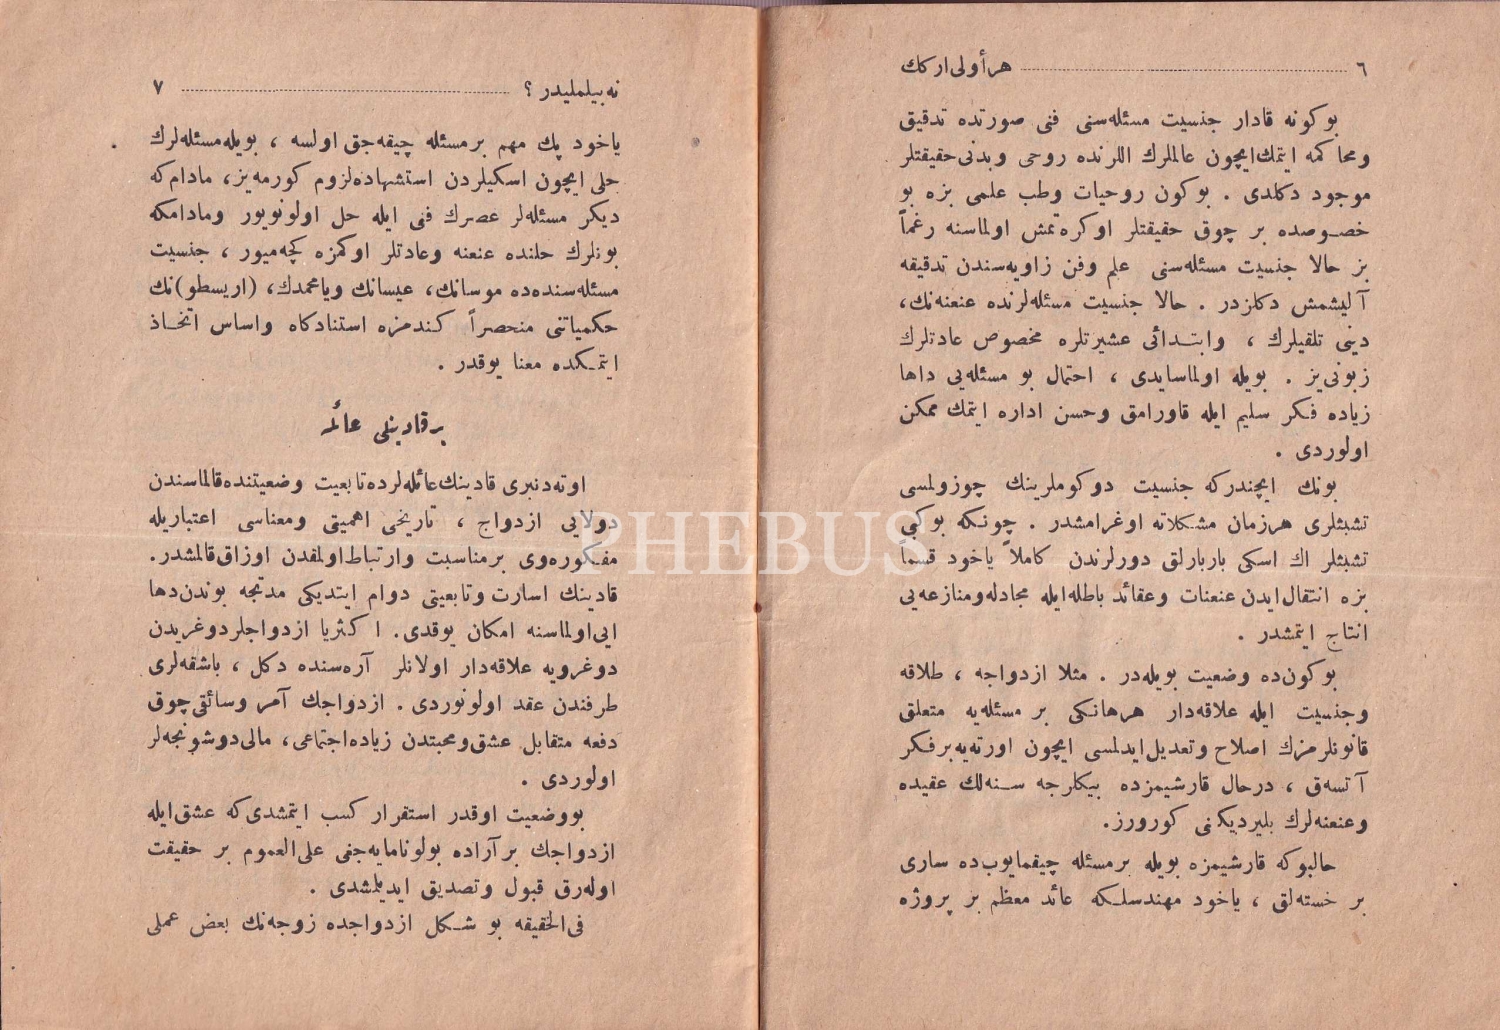 ٦ هر أولی ارکك
بو كونه قادار جنسیت مسئله‌سنی فنی صورتده تدقیق
ومحاكمه ایتمك ایچون عالملرك اللرنده روحی وبدنی حقیقتلر
موجود دكلدی . بوكون روحیات وطب علمی بزه بو
خصوصده بر چوق حقیقتلر اوكره‌تمش اولماسنه رغماً
بز حالا جنسیت مسئله‌سنی علم وفن زاویه‌سندن تدقیقه
آلیشمش دكلزدر . حالا جنسیت مسئله‌لرنده عنعنه‌نك،
دینی تلقیلرك ، وابتدائی عشیرتلره مخصوص عادتلرك
زبونی‌یز . بویله اولماسایدی ، احتمال بو مسئله‌یی داها
زیاده فكر سلیم ایله قاورامق وحسن اداره ایتمك ممكن
اولوردی .
بونك ایچندركه جنسیت دوكوملرینك چوزولمسی
تشبثلری هرزمان مشكلاته اوغرامشدر . چونكه بوكبی
تشبثلر اك اسكی باربارلق دورلرندن كاملاً یاخود قسماً
بزه انتقال ایدن عنعنات وعقائد باطله ایله مجادله ومنازعه‌یی
انتاج ایتمشدر .
بوكون‌ده وضعیت بویله‌در . مثلا ازدواجه ، طلاقه
وجنسیت ایله علاقه‌دار هرهانكی بر مسئله‌یه متعلق
قانونلرمزك اصلاح وتعدیل ایدلمسی ایچون اورته‌یه برفكر
آتسه‌ق ، درحال قارشیمزده بیكلرجه سنه‌لك عقیده
وعنعنه‌لرك بلیردیكنی كورورز.
حالبوكه قارشیمزه بویله برمسئله چیقمایوب‌ده ساری
بر خسته‌لق ، یاخود مهندسلكه عائد معظم بر پروژه
نه بیلملیدر ؟ ٧
یاخود پك مهم برمسئله چیقه‌جق اولسه ، بویله مسئله‌لرك
حلی ایچون اسكیلردن استشهاده لزوم كورمه‌یز، مادام‌كه
دیكر مسئله‌لر عصرك فنی ایله حل اولونویور ومادامكه
بونلرك حلنده عنعنه وعادتلر اوكمزه كچه‌میور ، جنسیت
مسئله‌سنده‌ده موسانك، عیسانك ویامحمدك، (اریسطو)نك
حكمیاتنی منحصراً كندمزه استنادكاه واساس اتخاذ
ایتمكده معنا یوقدر .
بر قادینلی عائله
اوته‌دنبری قادینك عائله‌لرده تابعیت وضعیتنده قالماسندن
دولایی ازدواج ، تاریخی اهمیتی ومعناسی اعتباریله
مفكوره‌وی بر مناسبت وارتباط اولمقدن اوزاق قالمشدر.
قادینك اسارت وتابعیتی دوام ایتدیكی مدتجه بوندن دها
ایی اولماسنه امكان یوقدی. اكثریا ازدواجلر دوغریدن
دوغرویه علاقه‌دار اولانلر آره‌سنده دكل ، باشقه‌لری
طرفندن عقد اولونوردی . ازدواجك آمر وسائقی چوق
دفعه متقابل عشق ومحبتدن زیاده اجتماعی، مالی دوشونجه‌لر
اولوردی .
بووضعیت اوقدر استقرار كسب ایتمشدی كه عشق ایله
ازدواجك بر آراده بولونامایه‌جغی علی‌العموم بر حقیقت
اوله‌رق قبول وتصدیق ایدیلمشدی .
فی‌الحقیقه بو شكل ازدواجده زوجه‌نك بعض عملی
PHEBUS